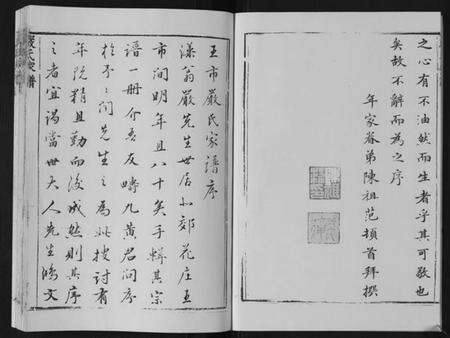 之心有不油然而生者乎其可敬也
矣故不辭而為之序
年家眷弟陳祖范頓首拜撰
王市嚴氏家譜序
漾翁嚴先生世居小郊花庄王
市間明年且八十矣手輯其宗
譜一冊介吾友疇九黃君問序
於予予問先生之為此搜討有
年既精且勤而後成然則其序
之者宜謁當世大人先生鴻文
嚴氏家譜